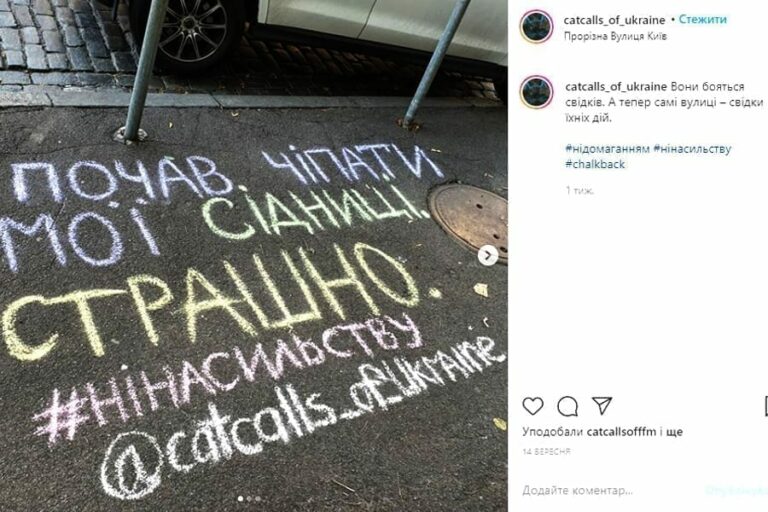 ПОЧАВ ЧІПАТИ
МОЇ СІДНИЦІ.
СТРАШНО.
#НІНАСИЛЬСТВУ
@catcalls_of_ukraine
catcalls_of_ukraine • Стежити
Прорізна Вулиця Київ
catcalls_of_ukraine Вони бояться
свідків. А тепер самі вулиці – свідки
їхніх дій.
#нідомаганням #нінасильству
#chalkback
1 тиж.
Уподобали catcallsofffm і ще
14 ВЕРЕСНЯ
Додайте коментар...